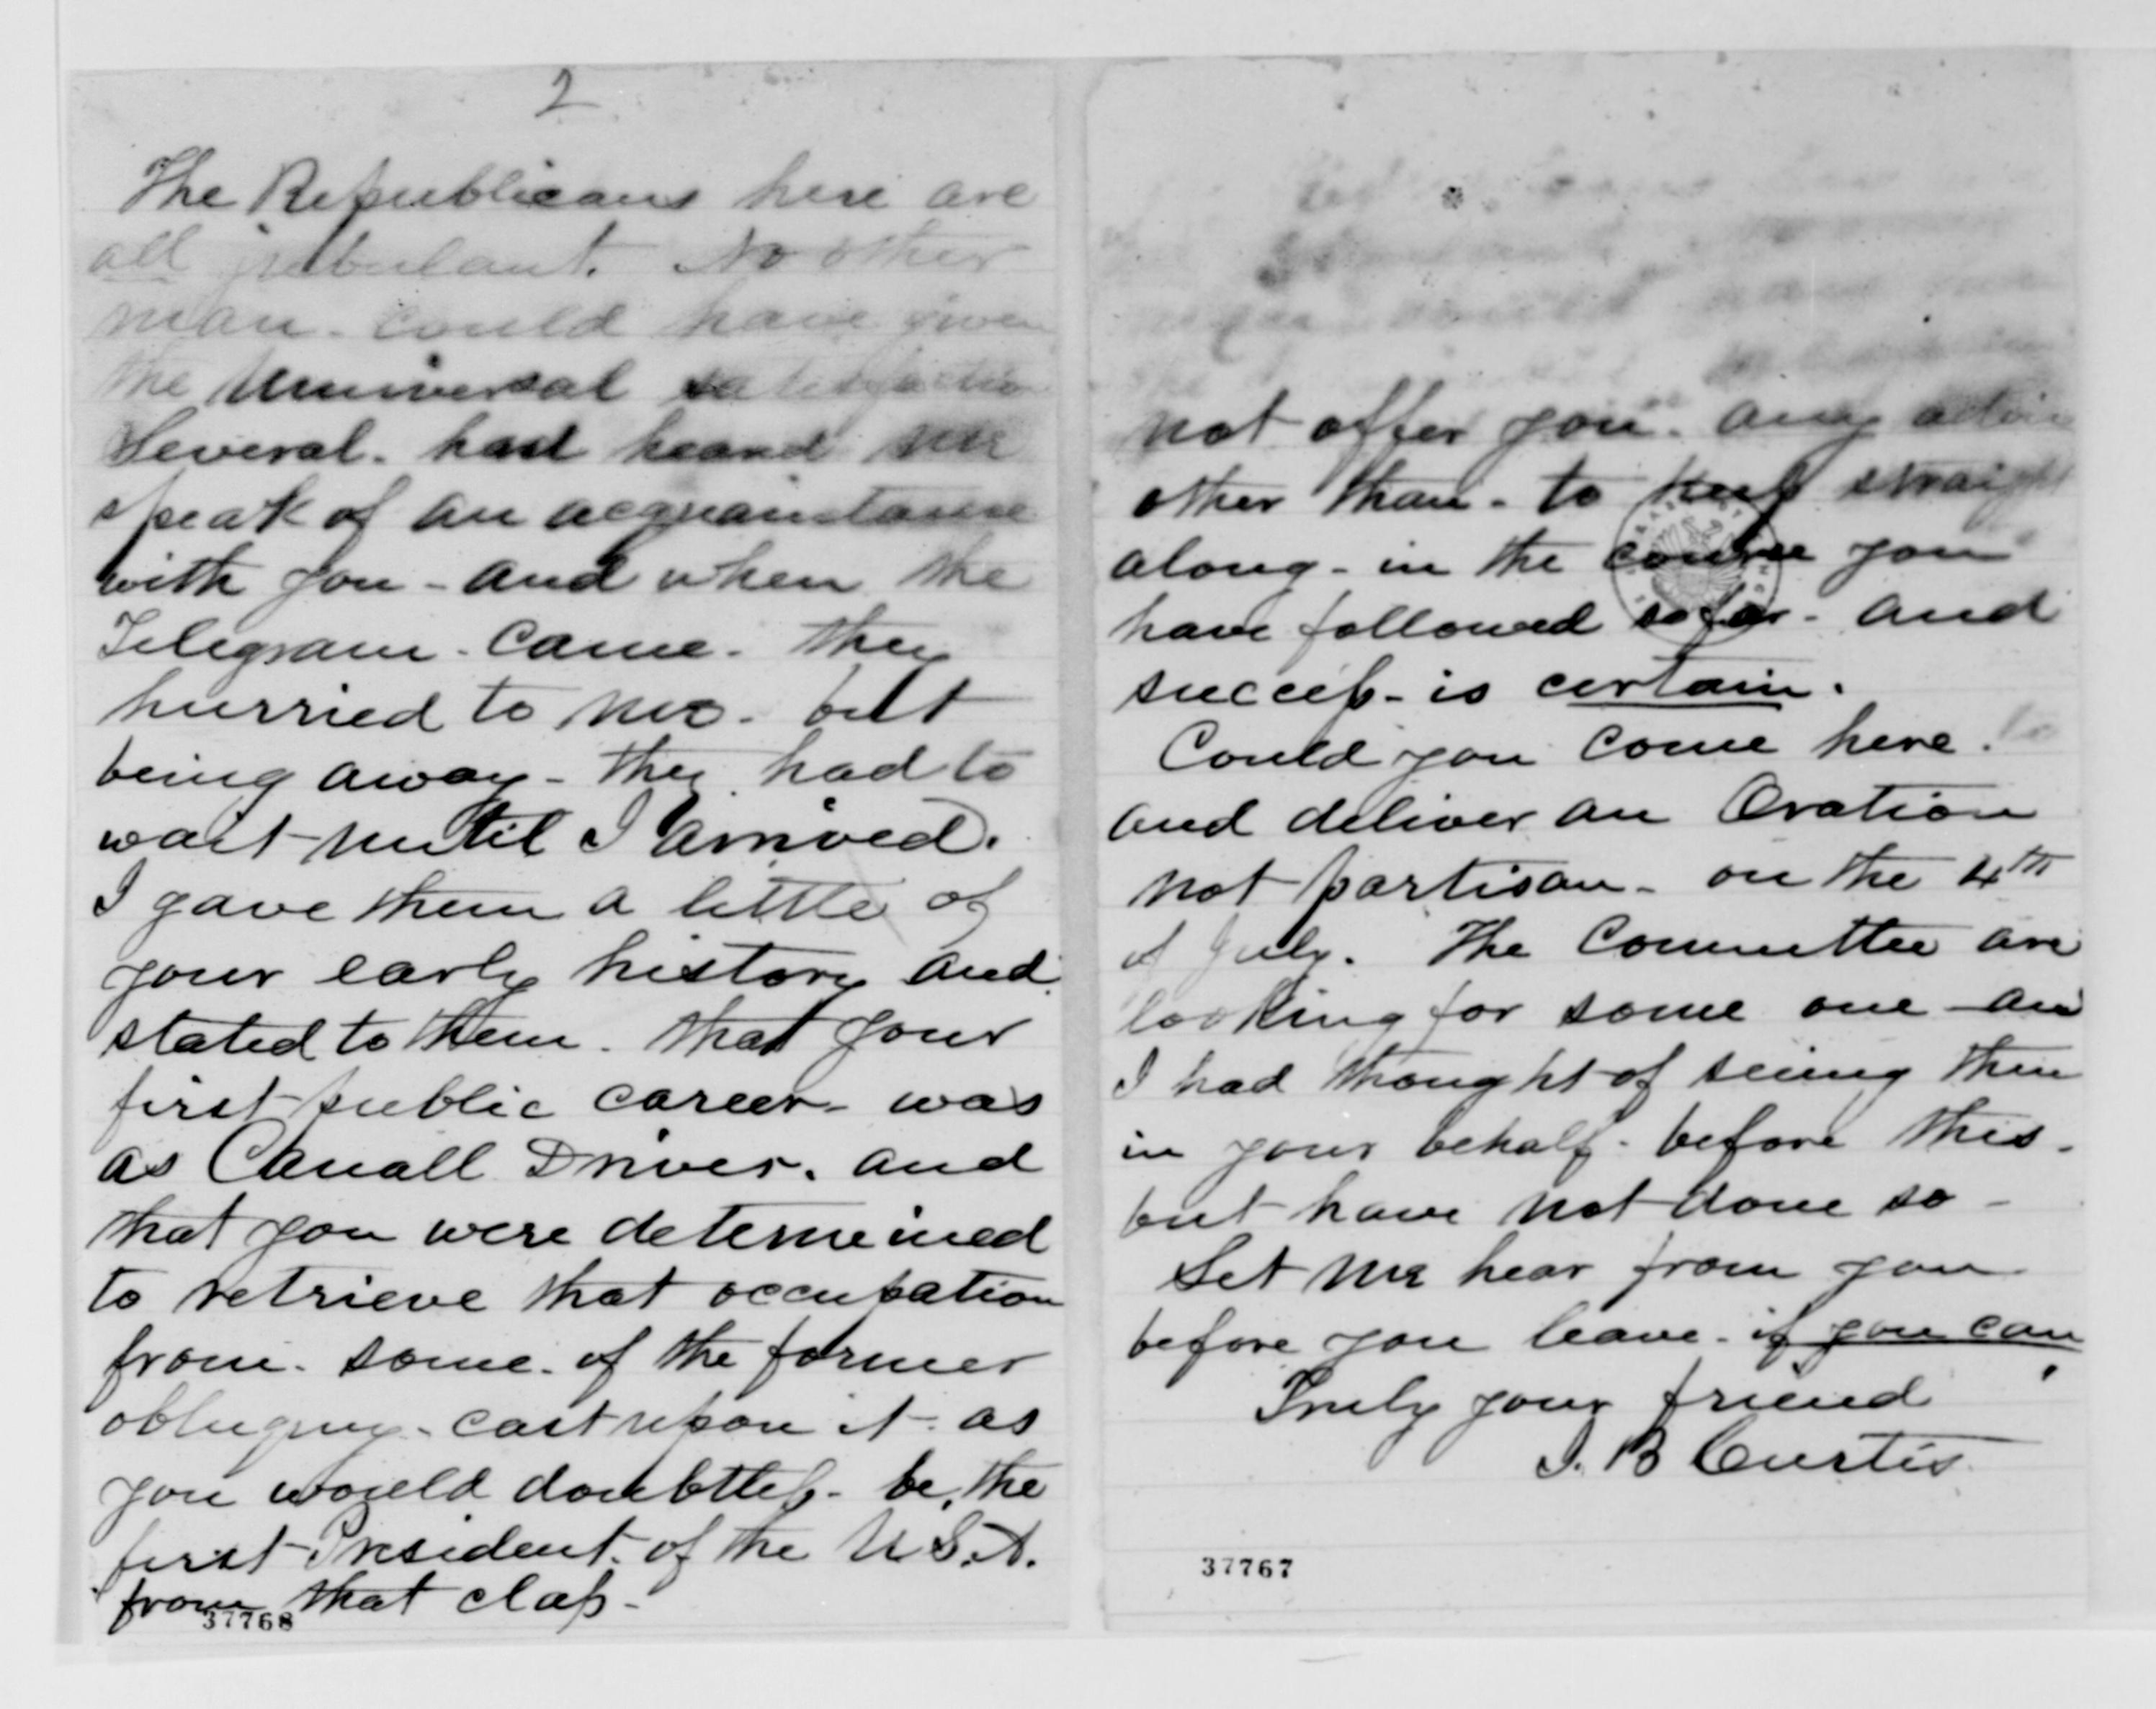 2
The Republicans here are
all jubulant. No other
man. could have given
the Universal satisfaction
Several. had heard me
speak of an acquaintance
with you - and when the
Telegram. came. they
hurried to me. but
being away - they had to
wait until I arrived.
I gave them a little of
your early history and
stated to them. that your
first public career - was
as Canall Driver. and
that you were determined
to retrieve that occupation
from. some. of the former
cast upon it - as
you would doubtless - be, the
first President. of the U S. A.
from that class -
37768
not offer you. any
other than - to keep straight
along - in the course you
have followed so far - and
success - is certain.
Could you come here.
and deliver an Oration
not partisan - on the 4th
of July. The Committee are
looking for some one - and
I had thought of seeing them
in your behalf - before this -
but have not done so -
Let me hear from you
before you leave - if you can
Truly your friend
J. B Curtis
37767